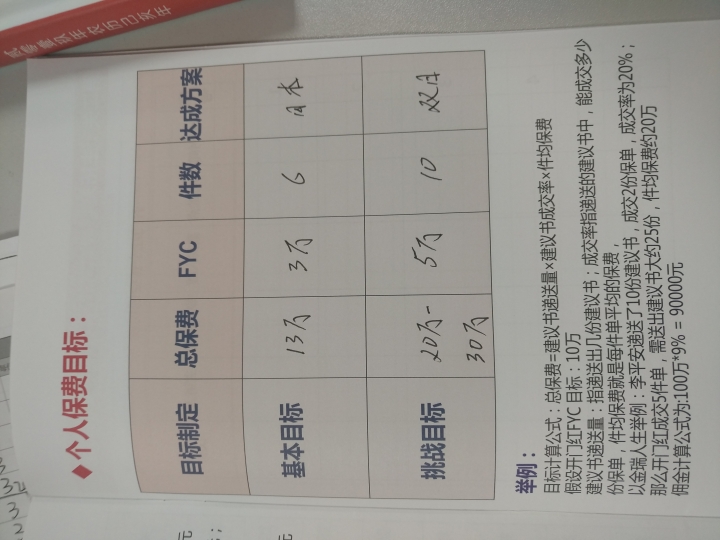 ◆ 个人保费目标：
目标制定 总保费 FYC 件数 达成方案
基本目标 13万 3万 6
挑战目标 20万- 5万 10 双月
30万
举例：
目标计算公式：总保费=建议书递送量×建议书成交率×件均保费
假设开门红FYC 目标：10万
建议书递送量：指递送出几份建议书；成交率指递送的建议书中，能成交多少
份保单，件均保费就是每件单平均的保费，
以金瑞人生举例：李平安递送了10份建议书，成交2份保单，成交率为20%；
那么开门红成交5件单，需送出建议书大约25份，件均保费约20万
佣金计算公式为:100万*9% = 90000元
3
32
3
2
元
；
元